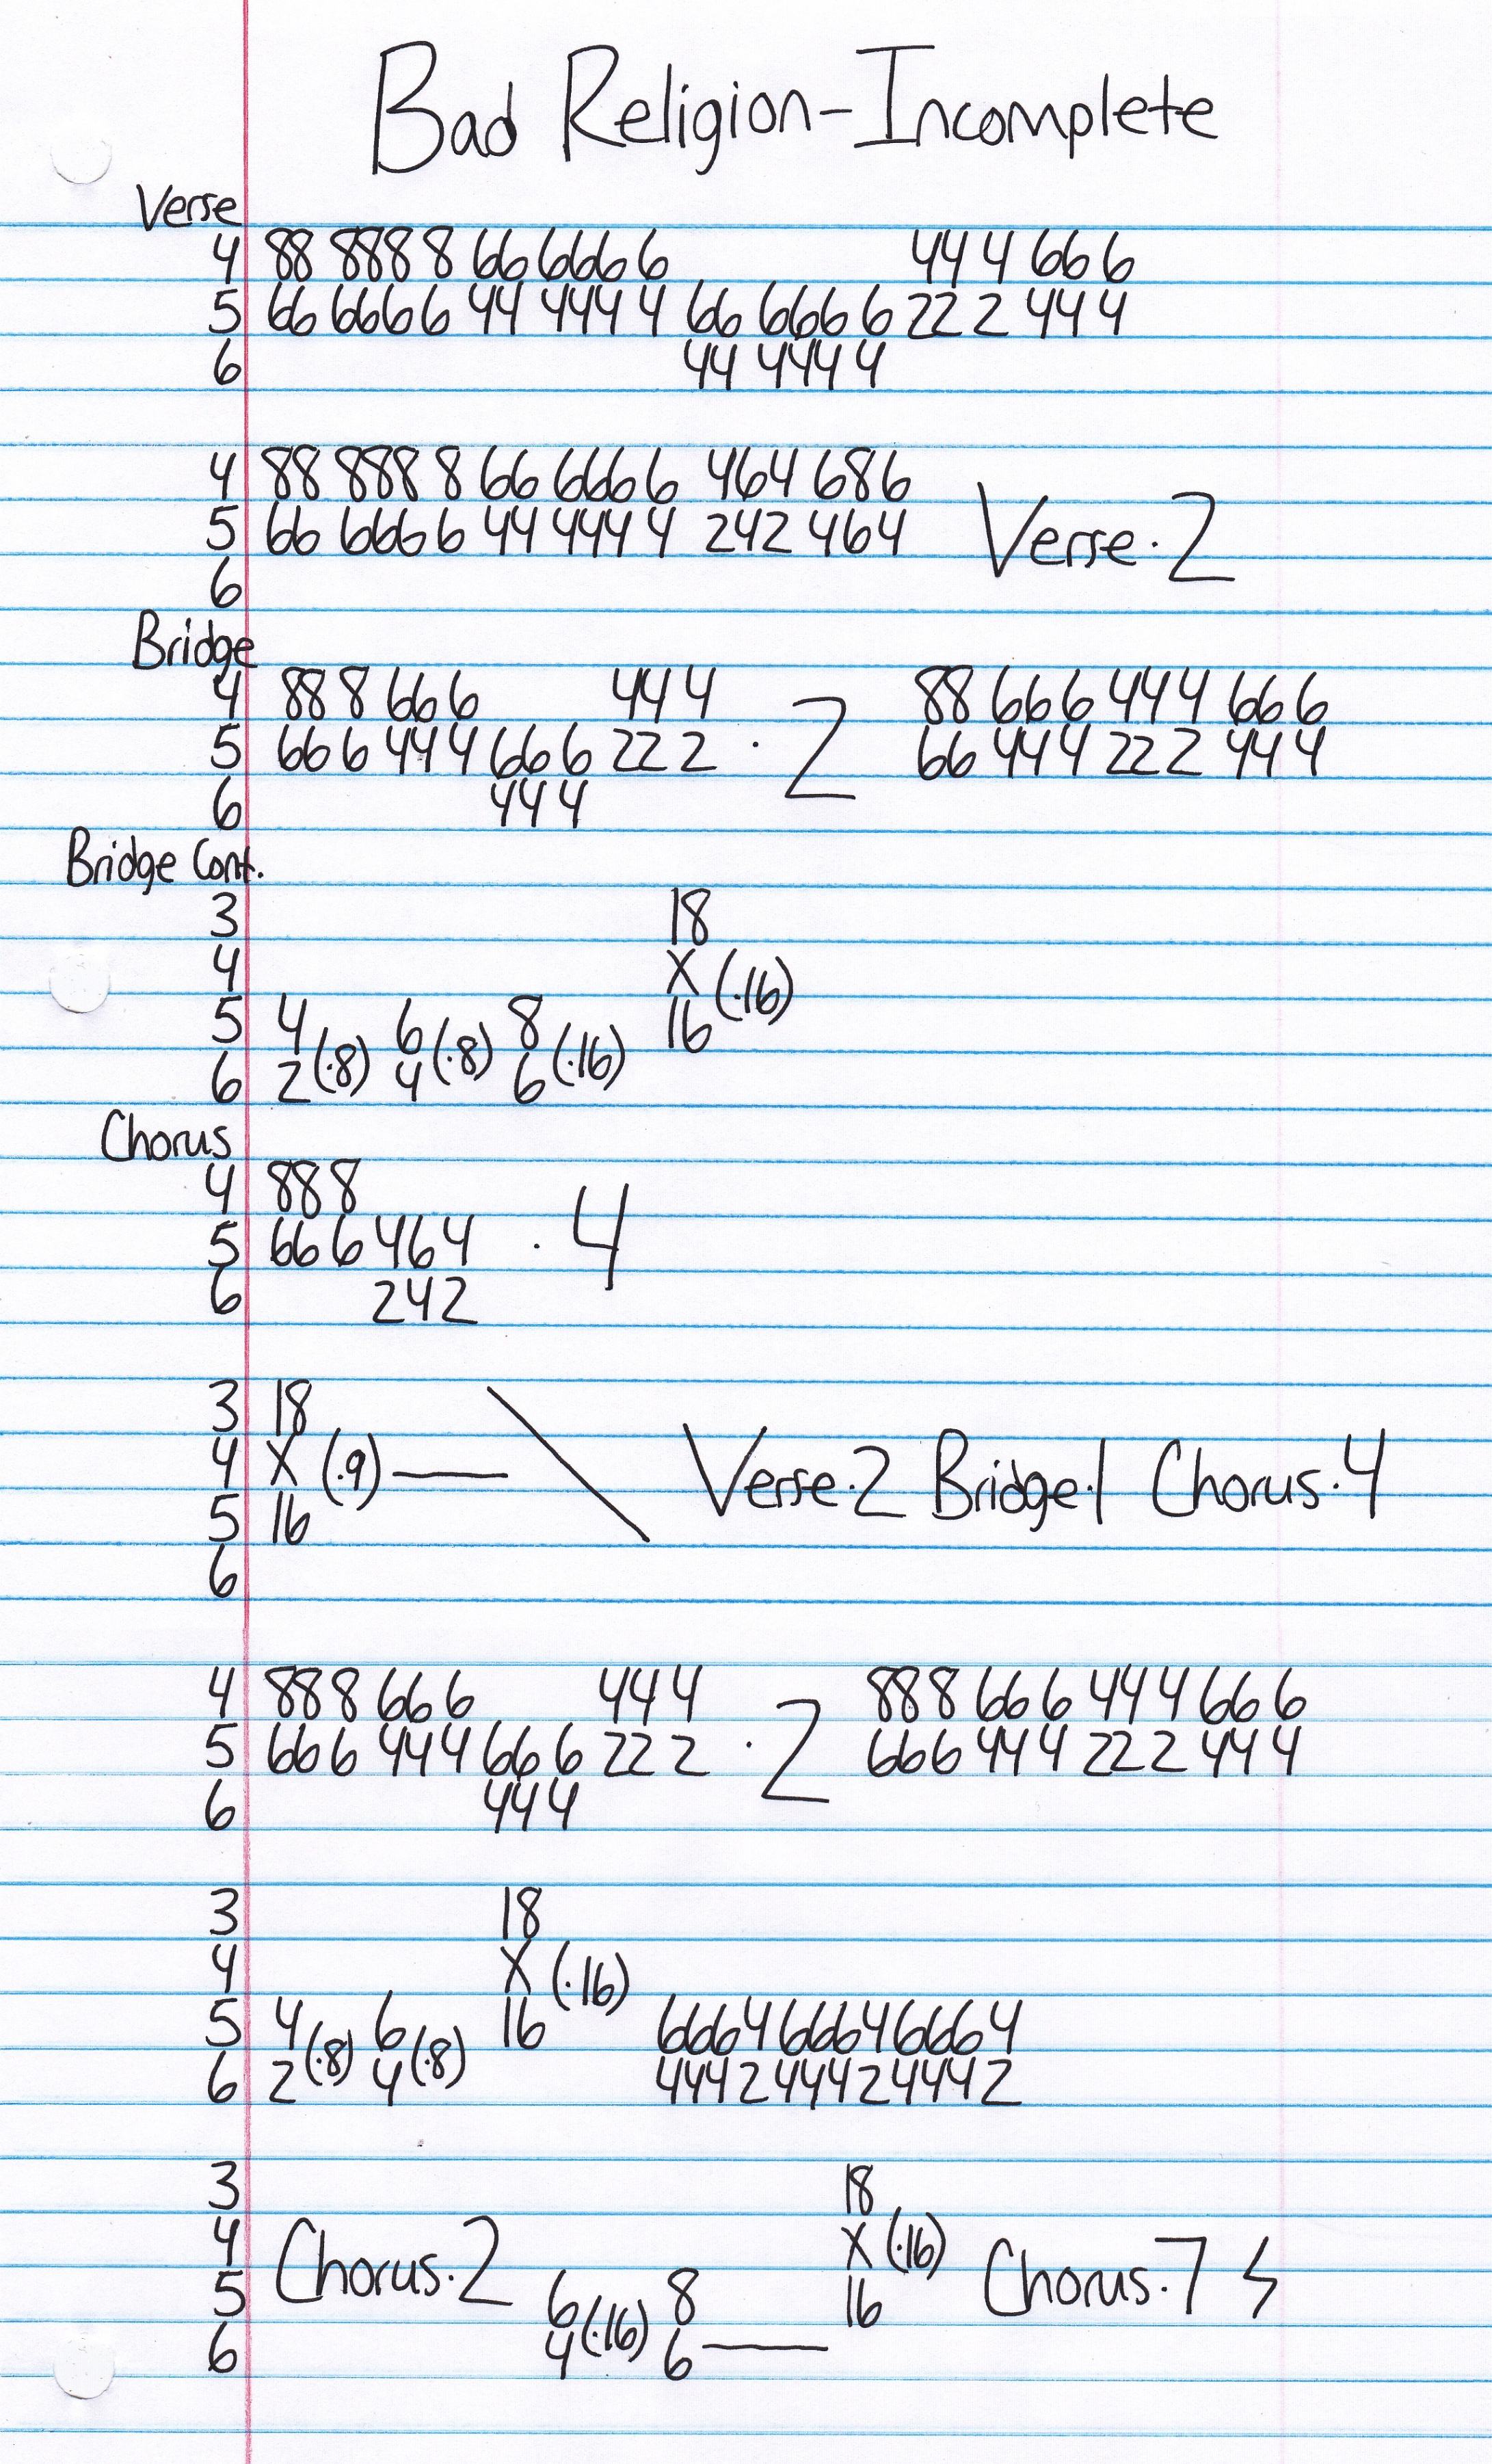 Bad Religion-Incomplete
Verse
4 88 888 8 66 666 6 44 4 66 6
5 66 666 6 44 444 4 66 666 6 22 2 44 4
6 44 444 4
4 88 888 8 66 666 6 464 686
5 66 666 6 44 444 4 242 464 Verse·2
6
Bridge
4 88 8 66 6 44 4 88 66 6 44 4 66 6
5 66 6 44 4 66 6 22 2 · 2 66 44 4 22 2 44 4
6 44 4
Bridge Cont.
3 18
4 X (·16)
5 4 6 8 16
6 2 (·8) 4 (·8) 6 (·16)
Chorus
4 88 8
5 66 6 464 · 4
6 242
3 18
4 X (·9) — \ Verse·2 Bridge·1 Chorus·4
5 16
6
4 88 8 66 6 44 4 88 8 66 6 44 4 66 6
5 66 6 44 4 66 6 22 2 · 2 66 6 44 4 22 2 44 4
6 44 4
3 18
4 X (·16)
5 4 6 16 666466646664
6 2 (·8) 4 (·8) 444244424442
3 18
4 Chorus·2 X (·16) Chorus·7
5 6 8 16
6 4 (·16) 6 —